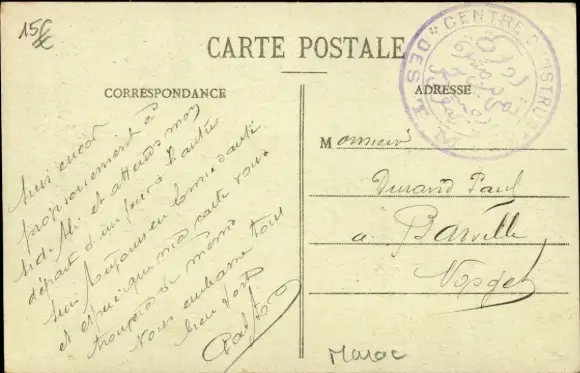 15€
CARTE POSTALE
CENTRE D'INSTRUC
DES
CORRESPONDANCE
ADRESSE
Suis encore
provisoirement à
et attends mon
départ d'un jour à l'autre
Suis toujours en bonne santé
et espère que ma carte vous
trouvera de même
Vous embrasse tous
bien fort
Monsieur
Durand Paul
a Barville
Vosges
Maroc